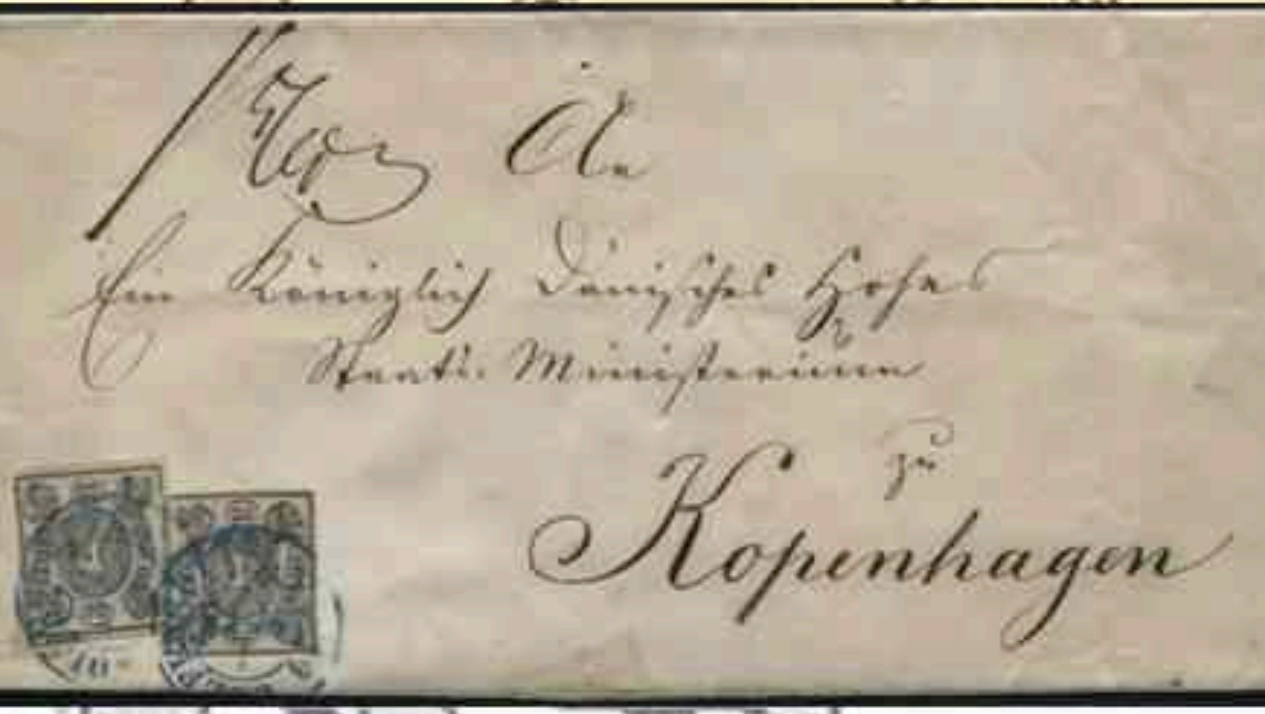 An
Ein Königlich Dänisches Hohes
Staats. Ministerium
zu
Kopenhagen